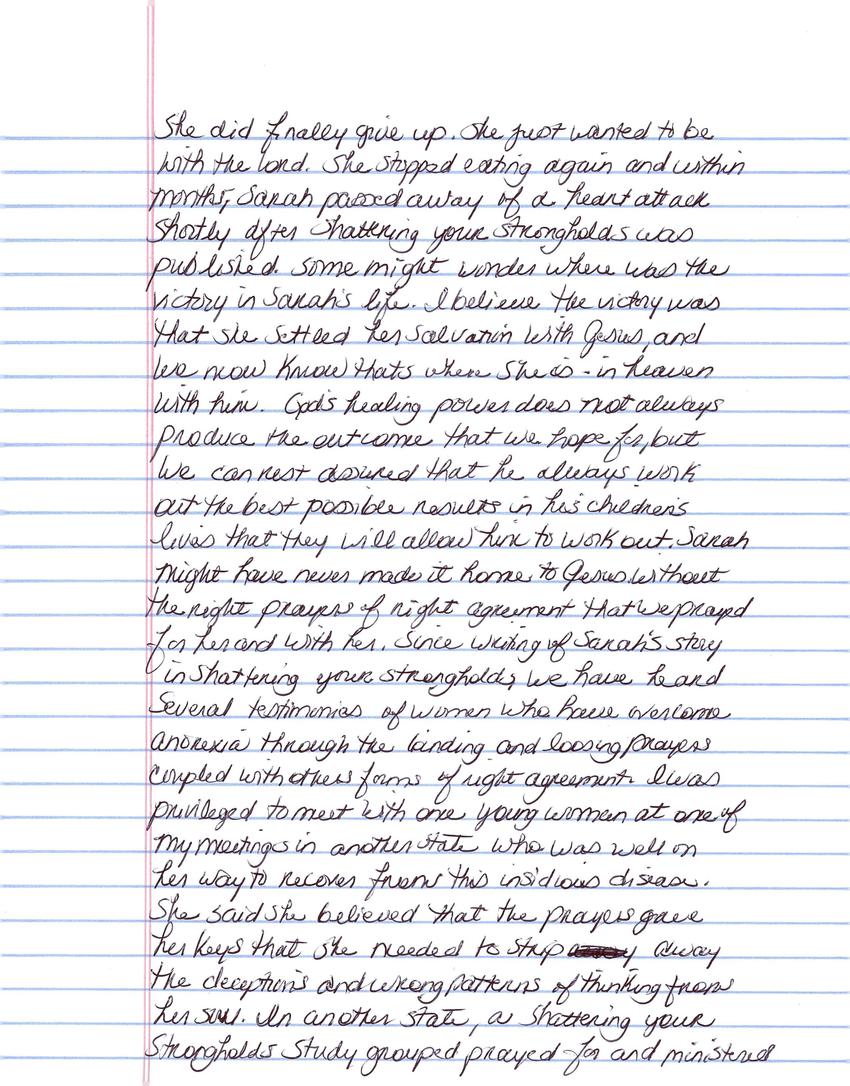 She did finally give up. She just wanted to be
with the Lord. She stopped eating again and within
months, Sarah passed away of a heart attack
shortly after Shattering your Strongholds was
published. Some might wonder where was the
victory in Sarah's life. I believe the victory was
that she settled her salvation with Jesus, and
we now know thats where she is - in heaven
with him. God's healing power does not always
produce the outcome that we hope for, but
we can rest assured that he always work
out the best possible results in his children's
lives that they will allow him to work out. Sarah
might have never made it home to Jesus without
the right prayers of right agreement that we prayed
for her and with her. Since writing of Sarah's story
in Shattering your strongholds, we have heard
several testimonies of women who have overcome
anorexia through the binding and loosing prayers
coupled with others forms of right agreement. I was
privileged to meet with one young woman at one of
my meetings in another state who was well on
her way to recover from this insidious disease.
She said she believed that the prayers gave
her keys that she needed to strip away
the deceptions and wrong patterns of thinking from
her soul. In another state, a Shattering your
Strongholds Study grouped prayed for and ministered